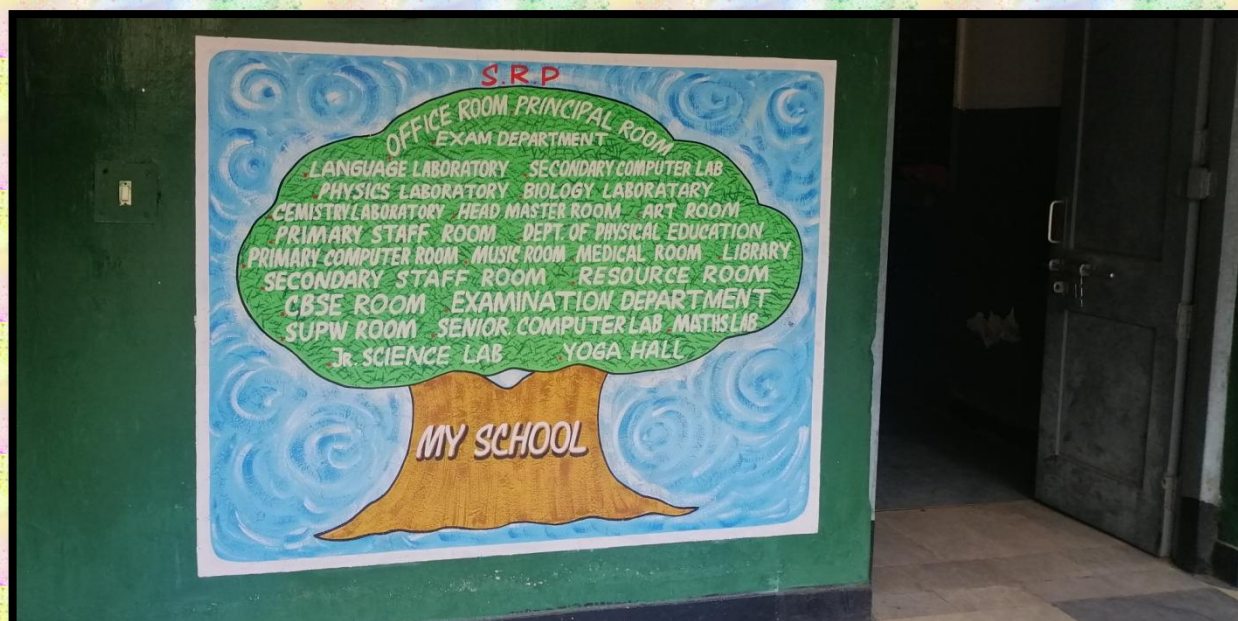 S.R.P
OFFICE ROOM PRINCIPAL ROOM
EXAM DEPARTMENT
LANGUAGE LABORATORY SECONDARY COMPUTER LAB
PHYSICS LABORATORY BIOLOGY LABORATARY
CEMISTRY LABORATORY HEAD MASTER ROOM ART ROOM
PRIMARY STAFF ROOM DEPT. OF PHYSICAL EDUCATION
PRIMARY COMPUTER ROOM MUSIC ROOM MEDICAL ROOM LIBRARY
SECONDARY STAFF ROOM RESOURCE ROOM
CBSE ROOM EXAMINATION DEPARTMENT
SUPW ROOM SENIOR COMPUTER LAB MATHS LAB
JR. SCIENCE LAB YOGA HALL
MY SCHOOL